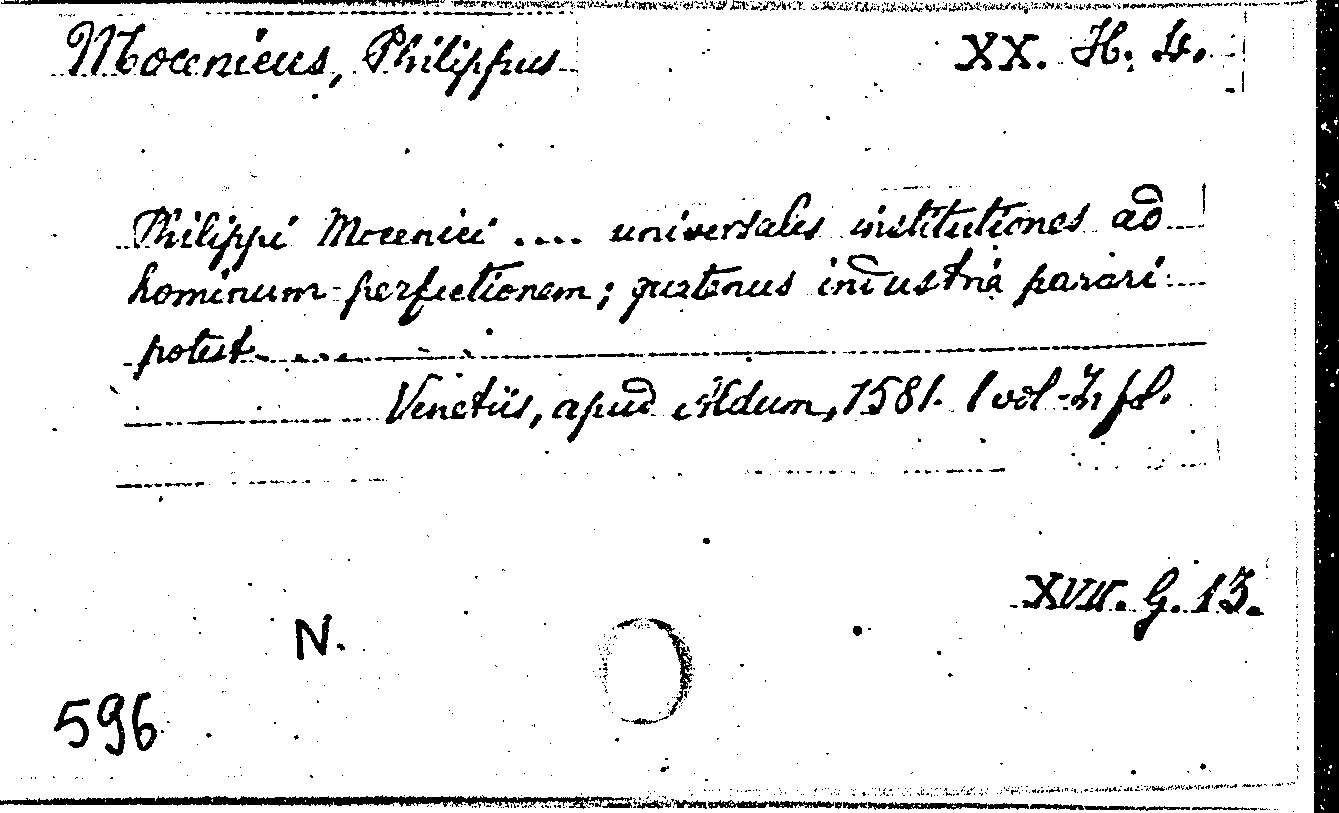 Mocenicus, Philippus
XX. H. 4.
Philippi Mocenici .... universales institutiones ad
hominum perfectionem; quatenus industria parari
potest....
Venetiis, apud Aldum, 1581. 1 vol. in fol.
XVII. G. 13.
N.
596